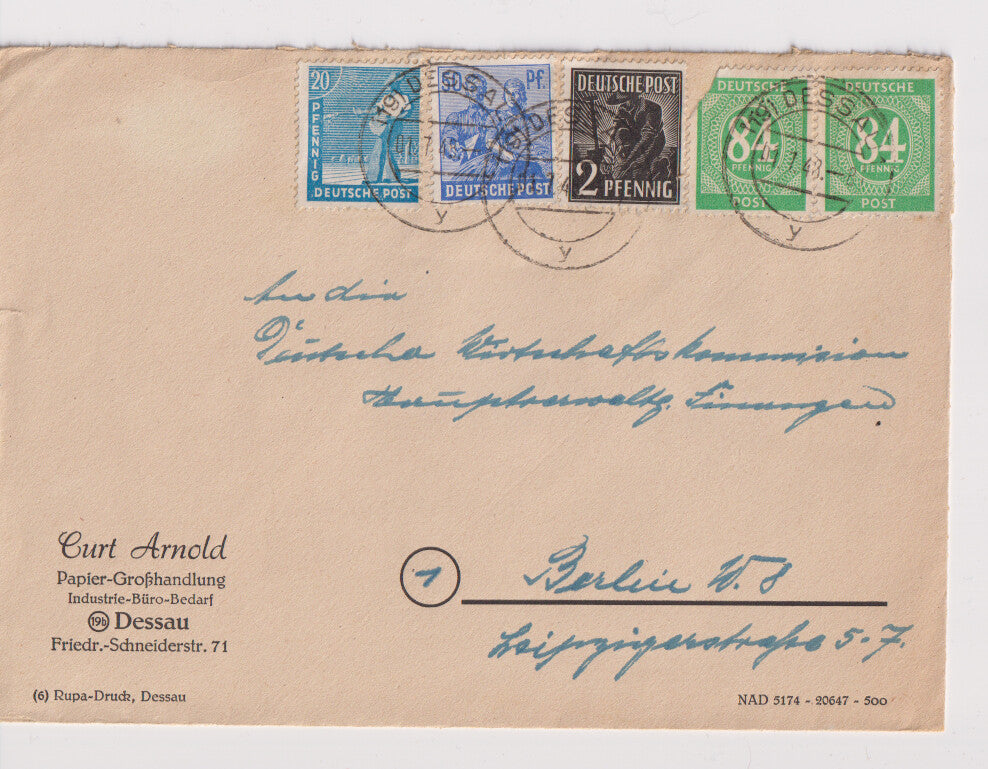 20
PFENNIG
DEUTSCHE POST
50 Pf.
DEUTSCHE POST
DEUTSCHE POST
2 PFENNIG
DEUTSCHE
84
PFENNIG
POST
DEUTSCHE
84
PFENNIG
POST
(19) DESSAU
y
DESS
y
(19) DESSA
y
An die
Deutsche Wirtschaftskommission
Hauptverwaltg. Finanzen
Curt Arnold
Papier-Großhandlung
Industrie-Büro-Bedarf
19b Dessau
Friedr.-Schneiderstr. 71
1
Berlin W. 8
Leipzigerstraße 5-7.
(6) Rupa-Druck, Dessau
NAD 5174 - 20647 - 500